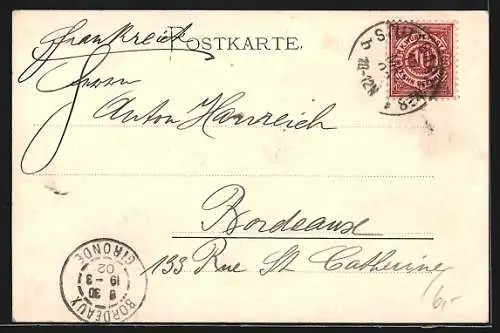 Frankreich
POSTKARTE.
Herrn
Anton Hanreich
Bordeaux
133 Rue St Catherine
BORDEAUX
6 30
19 - 3
02
GIRONDE
10-12N
6,-